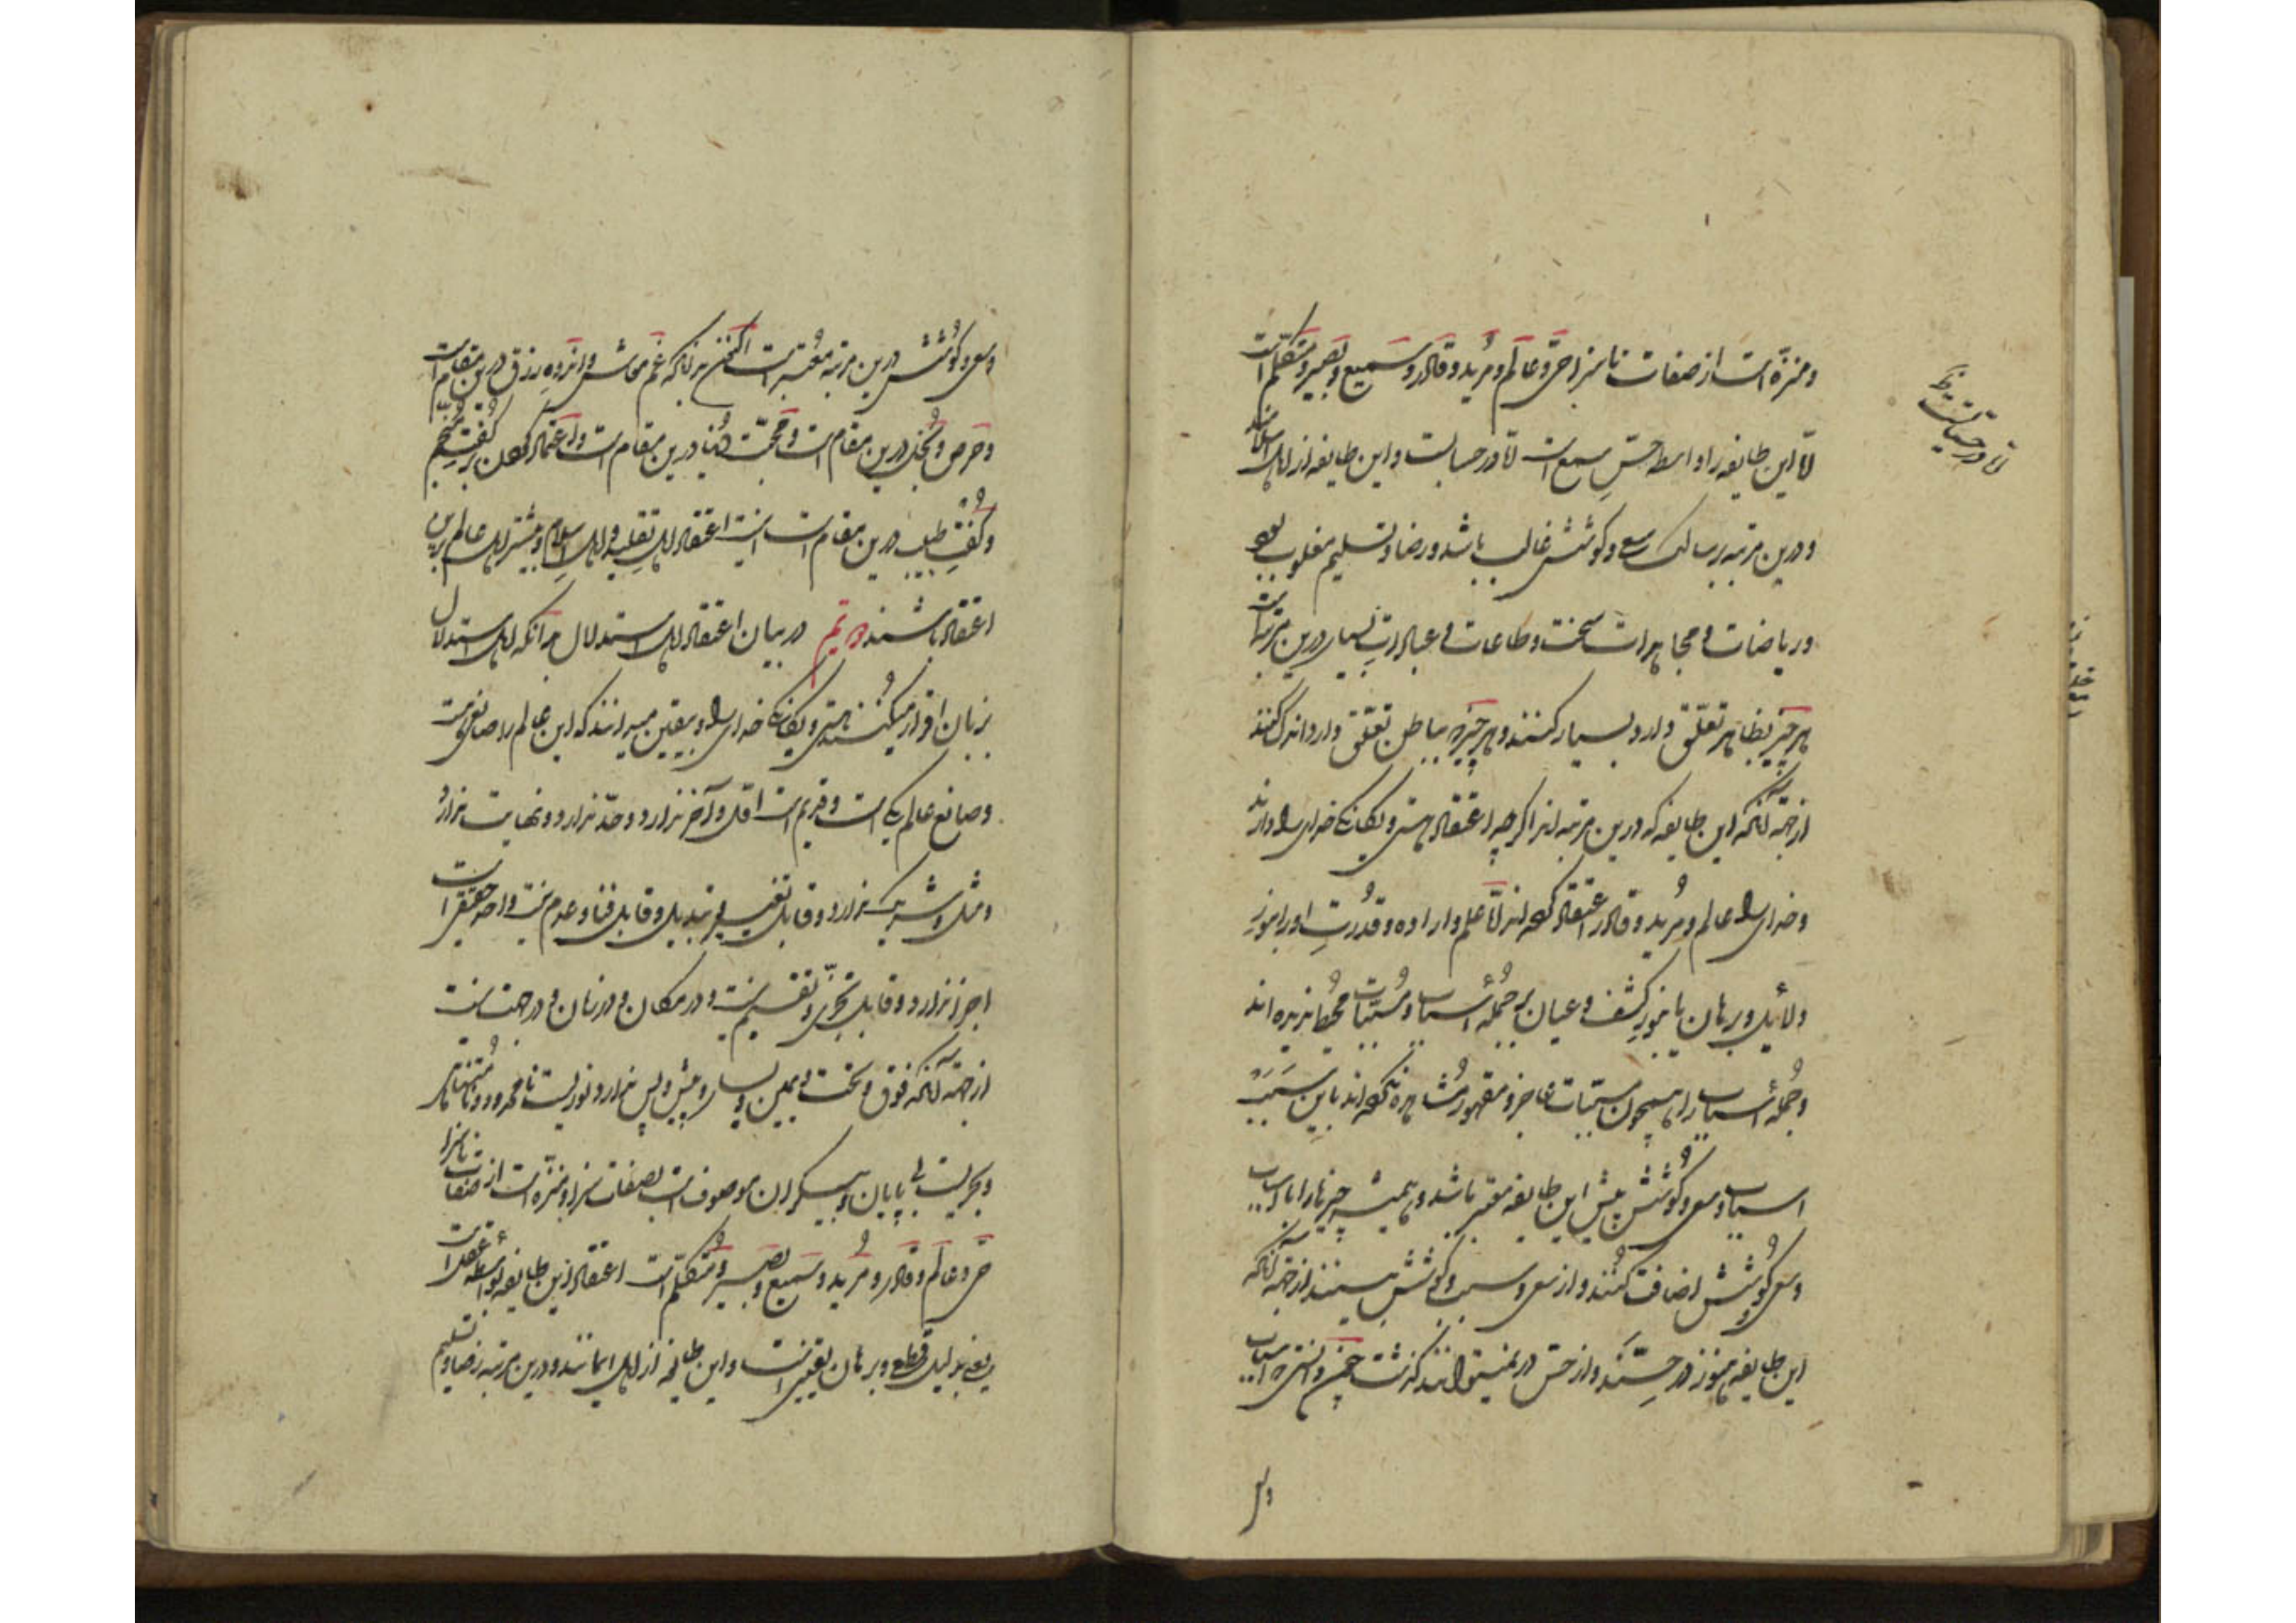 و منزّه است از صفات ناسزا حیّ و عالم و مرید و قادر و سمیع و بصیر و متکلّم است
امّا این طایفه را واسطه حسّ سمع است امّا در حسابست و این طایفه از اهل
و درین مرتبه بر سالک سعی و کوشش غالب باشد و رضا و تسلیم مغلوب بود
و ریاضات و مجاهدات سخت و طاعات و عبادات بسیار درین مرتبه است
هر چیز که بظاهر تعلّق دارد بسیار کنند و هر چیز که بباطن تعلّق دارد اندک کنند
از جهة آنکه این طایفه که درین مرتبه اند اگر چه اعتقاد بهستی و یگانگی خدای دارند
و خدای را عالم و مرید و قادر اعتقاد کرده اند امّا علم و اراده و قدرت او را بنور
دلائل و برهان یا بنور کشف و عیان بر جمله اسباب و مسبّبات محیط ندیده اند
و جمله اسباب را همچون مسبّبات عاجز و مقهور مشاهده نکرده اند باین سبب
اسباب و سعی و کوشش پیش این طایفه معتبر باشد و همیشه چیزها را باسباب
و سعی و کوشش اضافت کنند و از سعی و سبب و کوشش بینند از جهة آنکه
این طایفه هنوز در حسّ اند و از حسّ در نمیتوانند گذشت چون دانستی
و سعی و کوشش درین مرتبه معتبر است اکنون بدانکه غم معاش و اندوه رزق درین مقام است
و حرص و بخل درین مقام است و محبّت دنیا درین مقام است و اعتماد کردن بر گفت منجّم
و گفت طبیب درین مقام است اینست اعتقاد اهل تقلید و اهل اسلام و بیشتر اهل عالم برین
اعتقاد باشند در بیان اعتقاد اهل استدلال بدانکه اهل استدلال
بزبان اقرار میکنند بهستی و یگانگی خدای و بیقین میدانند که این عالم را صانعی هست
و صانع عالم یکی است و قدیم است اوّل و آخر ندارد و حدّ ندارد و نهایت ندارد
و مثل و شریک ندارد و قابل تغییر و تبدیل و قابل فنا و عدم نیست واحد حقیقی است
اجزا ندارد و قابل تجزّی و تقسیم نیست و در مکان و در زمان و در جهت نیست
از جهة آنکه فوق و تحت و یمین و یسار و پیش و پس ندارد نوریست نامحدود و نامتناهی
و بحریست بی پایان و بیکران موصوف است بصفات سزا و منزّه است از صفات ناسزا
حیّ و عالم و قادر و مرید و سمیع و بصیر و متکلّم است اعتقاد این طایفه بواسطه عقل است
یعنی بدلیل قطعی و برهان یقینی است و این طایفه از اهل ایمانند و درین مرتبه رضا و تسلیم